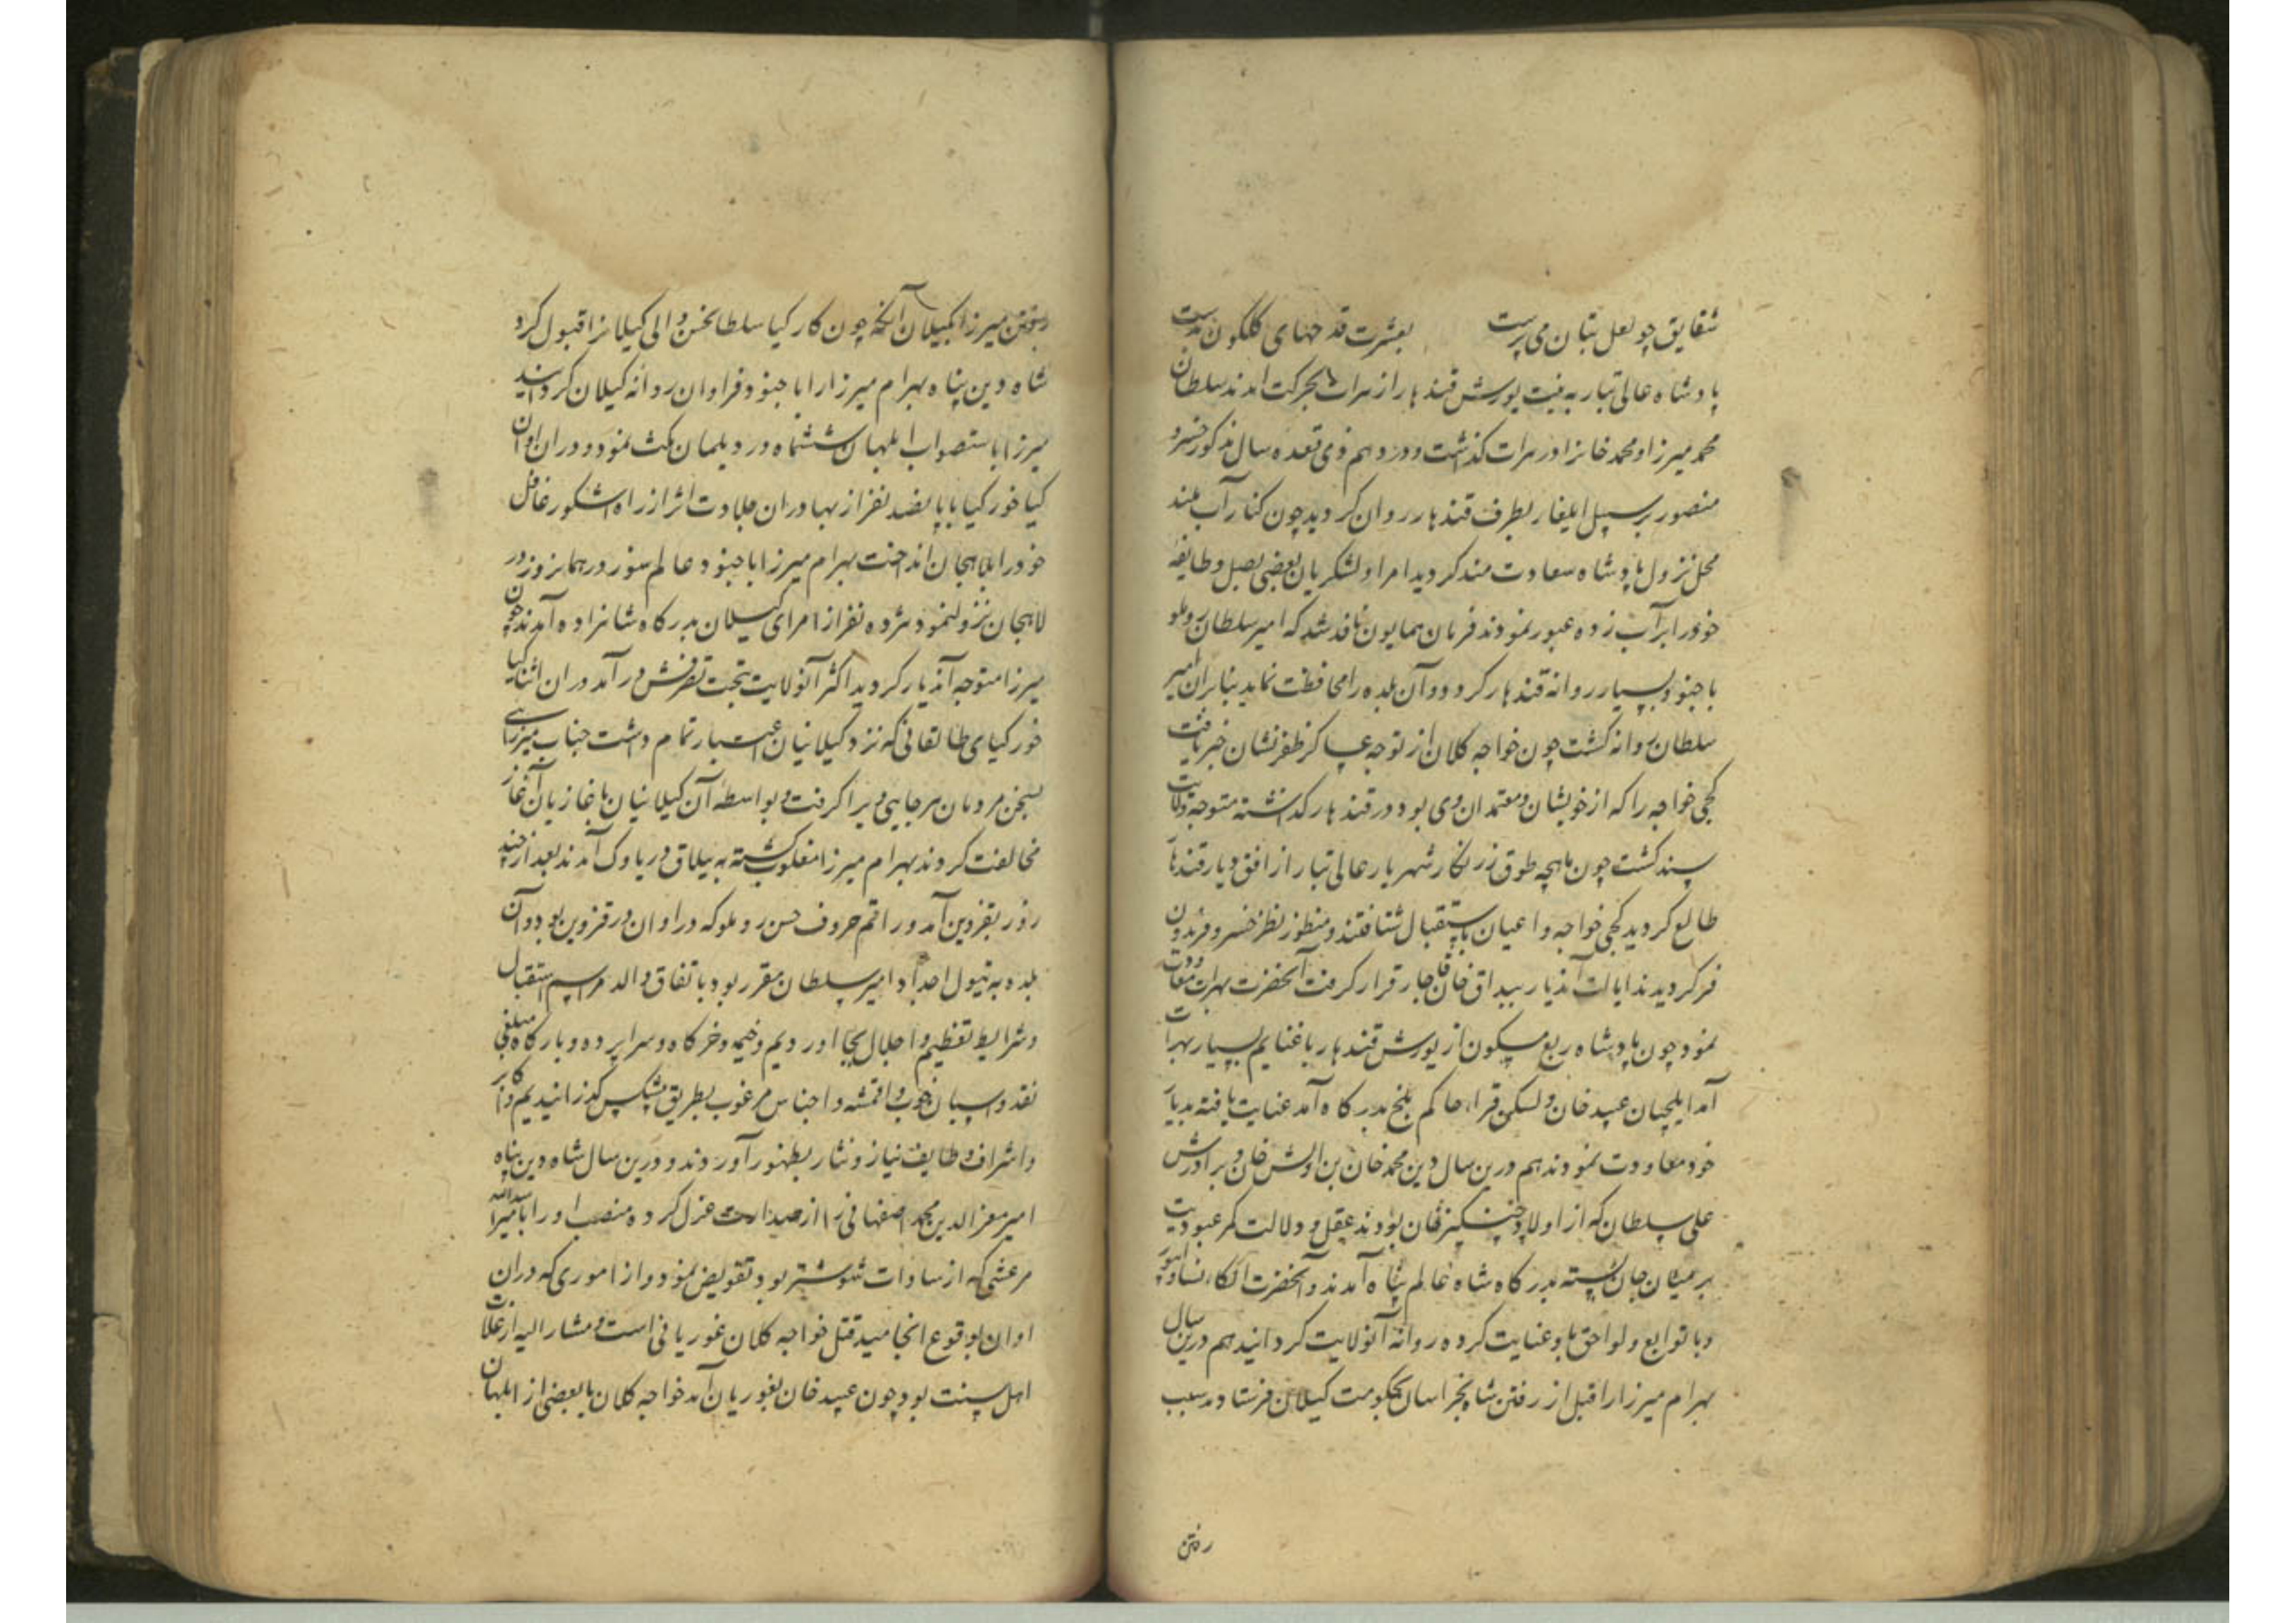 شقایق چو لعل بتان می پرست بعشرت قدحهای گلگون بدست
پادشاه عالی تبار به نیت یورش قندهار از هرات بحرکت آمدند سلطان
محمد میرزا و محمد خانرا در هرات گذاشت و در دهم ذی قعده سال مذکور خسرو
منصور بر سبیل ایلغار بطرف قندهار روان گردید چون کنار آب هلمند
محل نزول پادشاه سعادت مند گردید امرا و لشکریان بعضی بصل و طایفه
خود را بر آب زده عبور نمودند فرمان همایون نافذ شد که امیر سلطان روملو
با جنود بسیار روانه قندهار گردد و آن بلده را محافظت نماید بنابران امیر
سلطان روانه گشت چون خواجه کلان از توجه عساکر ظفر نشان خبر یافت
کجی خواجه را که از خویشان و معتمدان وی بود در قندهار گذاشته متوجه ولایت
سند گشت چون ماهچه طوق زرنگار شهریار عالی تبار از افق دیار قندهار
طالع گردید کجی خواجه و اعیان باستقبال شتافتند و منظور نظر خسرو فریدون
فر گردیدند ایالت آندیار ببداق خان قاجار قرار گرفت آنحضرت بهرات معاودت
نمود چون پادشاه ربع مسکون از یورش قندهار با غنایم بسیار بهرات
آمد ایلچیان عبید خان و لسکن قرا، حاکم بلخ بدرگاه آمد عنایت یافته بدیار
خود معاودت نمودند هم درین سال دین محمد خان بن اولش خان و برادرش
علی سلطان که از اولاد چنگیز خان بودند بعقل و دلالت کمر عبودیت
بر میان جان بسته بدرگاه شاه عالم پناه آمدند و آنحضرت الکاء نسا و ابیورد
و با توابع و لواحق باو عنایت کرده روانه آنولایت گردانید هم درین سال
بهرام میرزا را قبل از رفتن شاه بخراسان بحکومت گیلان فرستاد سبب
رفتن
رفتن میرزا بگیلان آنکه چون کارکیا سلطانحسن والی گیلانرا قبول کرد
شاه دین پناه بهرام میرزا را با جنود فراوان روانه گیلان گردانید
میرزا باستصواب ابلهان ششماه در دیلمان مکث نمود و دران اوان
کیا خور کیا با پانصد نفر از بهادران جلادت اثر از راه اشکور غافل
خود را بلاهجان انداخت بهرام میرزا با جنود عالم سوز در همانروز در
لاهجان نزول نمود هژده نفر از امرای گیلان بدرگاه شاهزاده آمدند چون
میرزا متوجه آندیار گردید اکثر آنولایت بتحت تصرفش در آمد دران اثنا کیا
خور کیای طالقانی که نزد گیلانیان اعتبار تمام داشت جناب میرزای
بسخن مردمان هر جایی ویرا گرفت و بواسطه آن گیلانیان با غازیان آغاز
مخالفت کردند بهرام میرزا مغلوب گشته به ییلاق دریاوک آمدند بعد از چند
روز بقزوین آمد و راقم حروف حسن روملو که دران اوان در قزوین بود و آن
بلده به تیول اجداد امیر سلطان مقرر بود باتفاق والد مراسم استقبال
و شرایط تعظیم و اجلال بجا آوردیم و خیمه و خرگاه و سراپرده و بارگاه مبلغی
نقد و اسپان خوب و اقمشه و اجناس مرغوب بطریق پیشکش گذرانیدیم و اکابر
و اشراف وظایف نیاز و نثار بظهور آوردند و درین سال شاه دین پناه
امیر معز الدین محمد اصفهانی را از صدارت عزل کرده منصب او را با میر اسدالله
مرعشی که از سادات شوشتر بود تفویض نمود و از اموری که دران
اوان بوقوع انجامید قتل خواجه کلان غوریانی است و مشارالیه از غلات
اهل سنت بود چون عبید خان بغوریان آمد خواجه کلان با بعضی از ابلهان